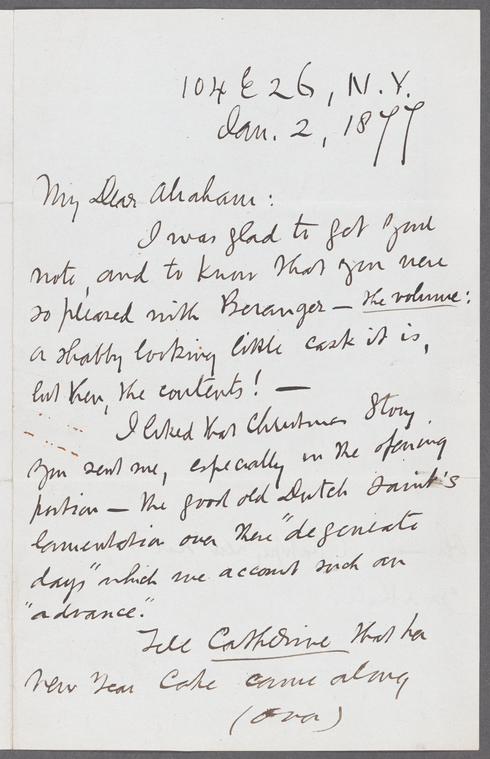 104 E 26, N.Y.
Jan. 2, 1877
My Dear Abraham:
I was glad to get your
note, and to know that you were
so pleased with Beranger — the volume:
a shabby looking little cask it is,
but then, the contents! —
I liked that Christmas Story
you sent me, especially in the opening
portion — the good old Dutch Saint's
lamentation over these "degenerate
days" which we account such an
"advance."
Tell Catherine that her
New Year Cake came along
(over)